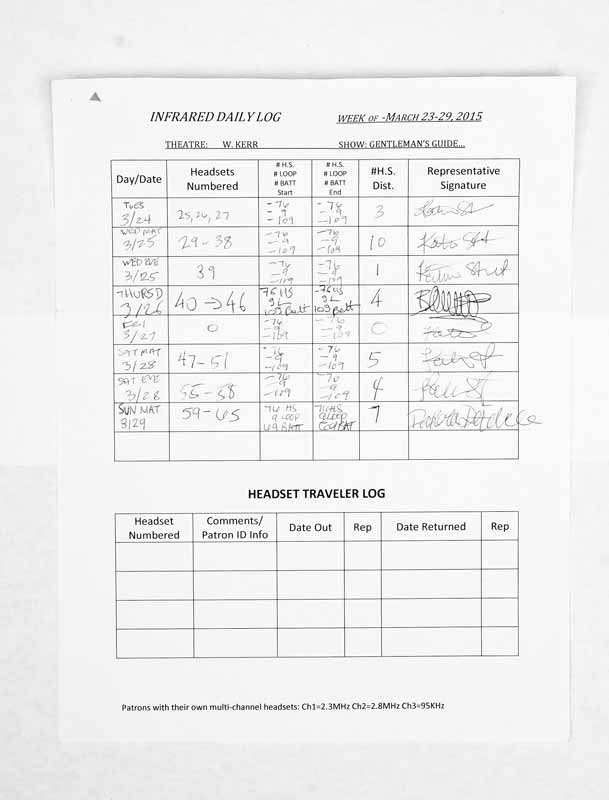 INFRARED DAILY LOG WEEK OF -MARCH 23-29, 2015
THEATRE: W. KERR SHOW: GENTLEMAN'S GUIDE...
Day/Date Headsets Numbered # H.S. # LOOP # BATT Start # H.S. # LOOP # BATT End #H.S. Dist. Representative Signature
TUES 3/24 25, 26, 27 -76 -9 -109 -76 -9 -109 3
WED MAT 3/25 29-38 -76 -9 -109 -76 -9 -109 10
WED EVE 3/25 39 -76 -9 -109 -76 -9 -109 1
THURSD 3/26 40 → 46 76 HS 9L 109 Batt -76 HS 9L 109 Batt 4
FRI 3/27 0 -76 -9 -109 -76 -9 -109 0
SAT MAT 3/28 47-51 -76 -9 -109 -76 -9 -109 5
SAT EVE 3/28 55-58 -76 -9 -109 -76 -9 -109 4
SUN MAT 3/29 59-65 76 HS 9 LOOP BATT 76 HS 9 LOOP BAT 7
HEADSET TRAVELER LOG
Headset Numbered Comments/ Patron ID Info Date Out Rep Date Returned Rep
Patrons with their own multi-channel headsets: Ch1=2.3MHz Ch2=2.8MHz Ch3=95KHz